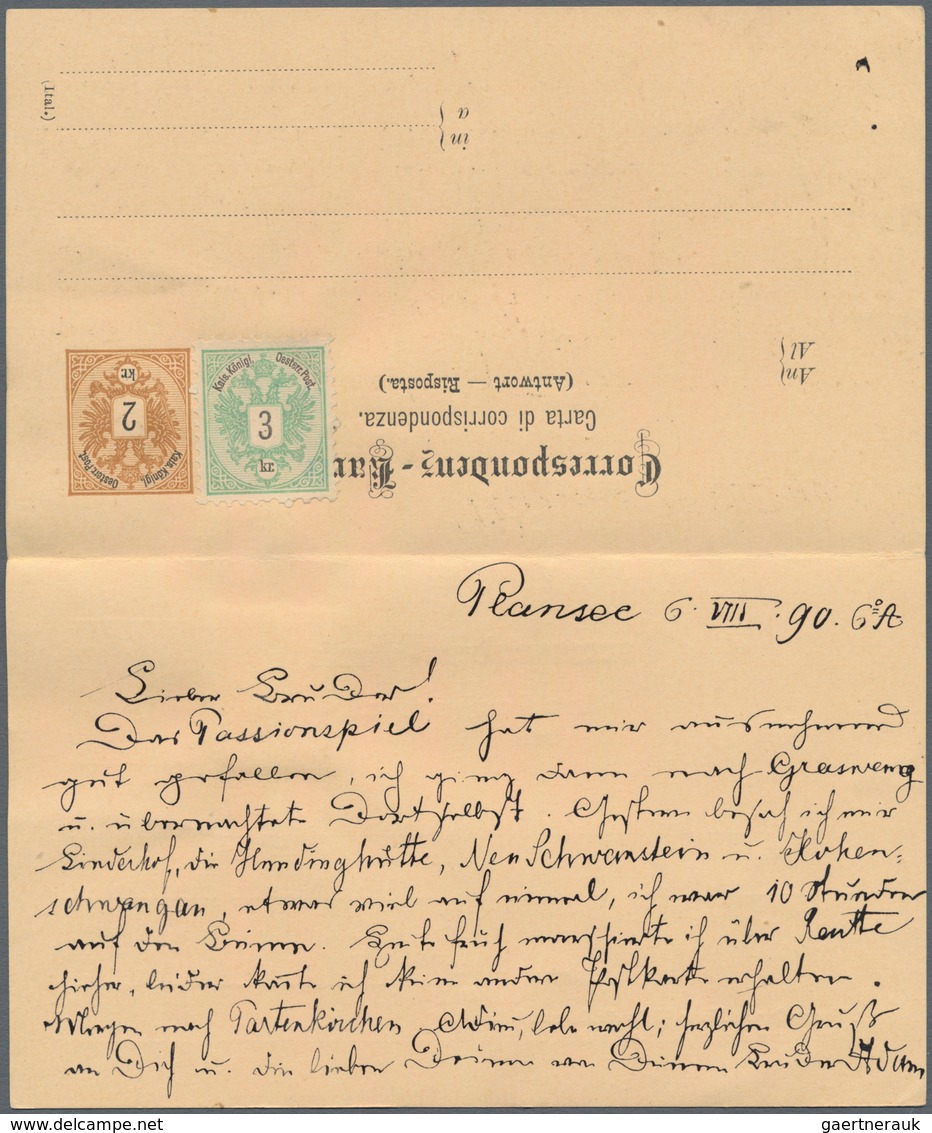 (Ital.)
in
a
An
Al
2
kr.
Kais. Königl. Oesterr. Post.
3
kr.
Kais. Königl. Oesterr. Post.
(Antwort — Risposta.)
Carta di corrispondenza.
Correspondenz-Kar
Plansee 6. VIII. 90. 6° A
Lieber Bruder!
Das Passionspiel hat mir ausnehmend
gut gefallen, ich ging dann nach Graswang
u. übernachtete dortselbst. Gestern besah ich mir
Linderhof, die Hundinghütte, Neu Schwanstein u. Hohen-
schwangau, etwas viel auf einmal, ich war 10 Stunden
auf den Beinen. Heute früh marschierte ich über Reutte
hieher, leider konnte ich keine andere Postkarte erhalten.
Morgen nach Partenkirchen. Adieu, lebe wohl; herzlichen Gruß
an Dich u. die lieben Deinen von Deinem Bruder Adam
gaertnerauk / delcampe.net